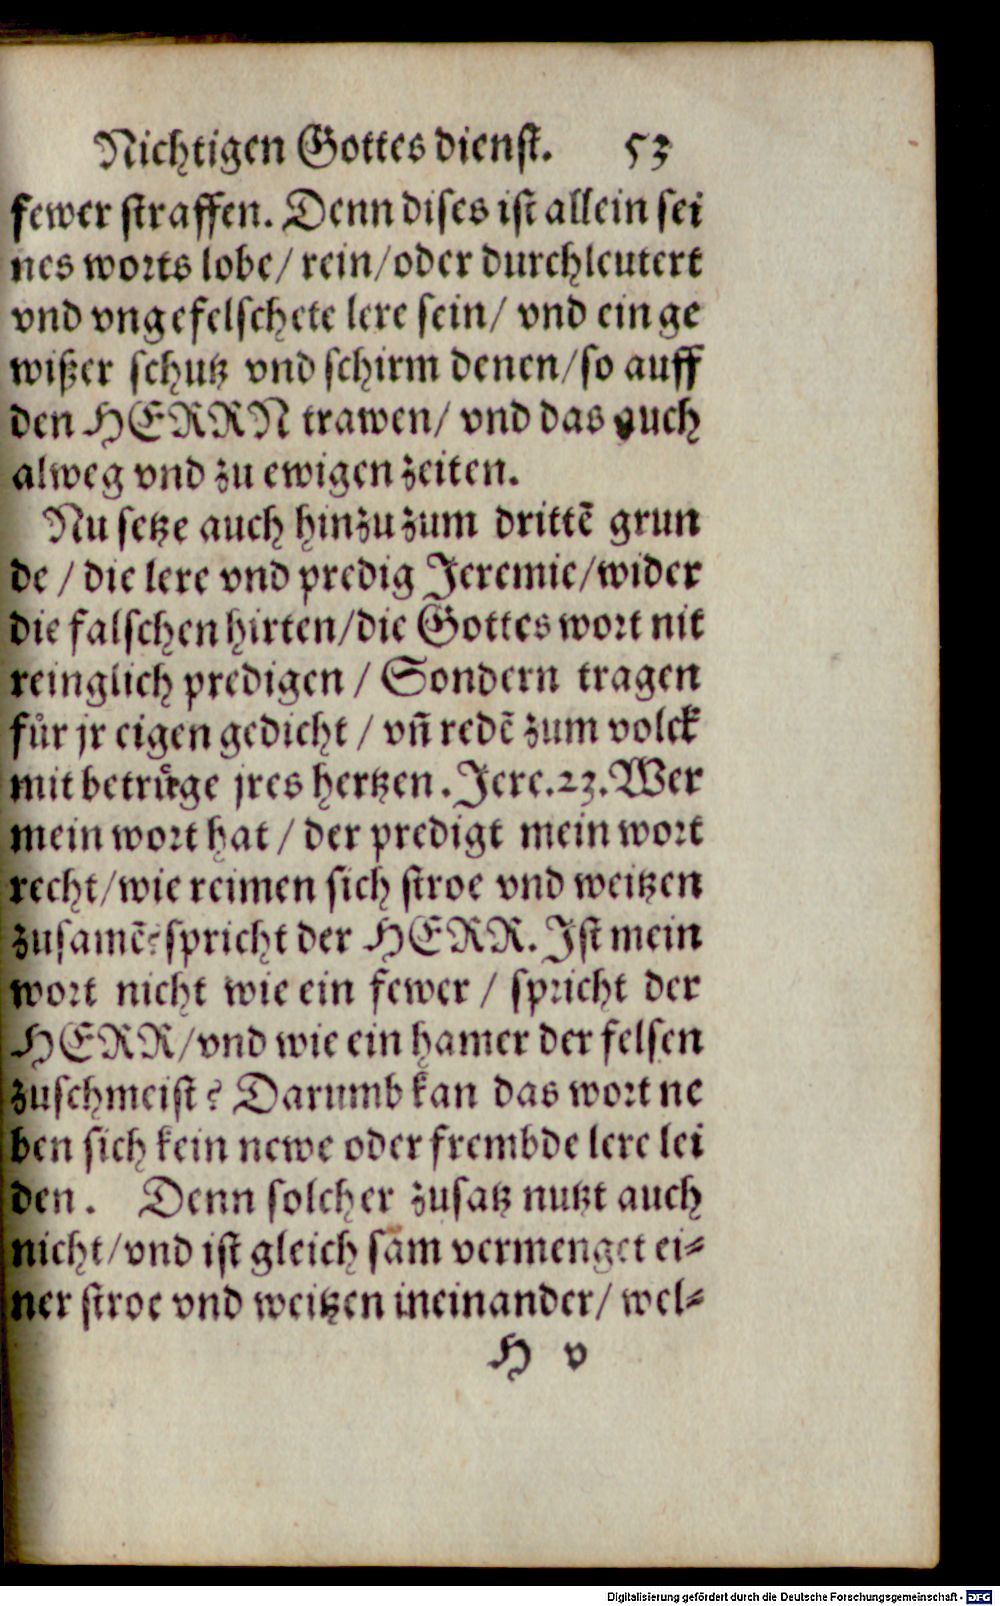 Nichtigen Gottes dienst. 53
fewer straffen. Denn dises ist allein sei
nes worts lobe / rein / oder durchleutert
vnd vngefelschete lere sein / vnd ein ge
wißer schutz vnd schirm denen / so auff
den HERRN trawen / vnd das auch
alweg vnd zu ewigen zeiten.
Nu setze auch hinzu zum drittẽ grun
de / die lere vnd predig Jeremie / wider
die falschen hirten / die Gottes wort nit
reinglich predigen / Sondern tragen
fuͤr jr eigen gedicht / vñ redẽ zum volck
mit betruͤge jres hertzen. Jere. 23. Wer
mein wort hat / der predigt mein wort
recht / wie reimen sich stroe vnd weitzen
zusamẽ? spricht der HERR. Ist mein
wort nicht wie ein fewer / spricht der
HERR / vnd wie ein hamer der felsen
zuschmeist? Darumb kan das wort ne
ben sich kein newe oder frembde lere lei
den. Denn solcher zusatz nutzt auch
nicht / vnd ist gleich sam vermenget ei=
ner stroe vnd weitzen ineinander / wel=
H v
Digitalisierung gefördert durch die Deutsche Forschungsgemeinschaft - DFG